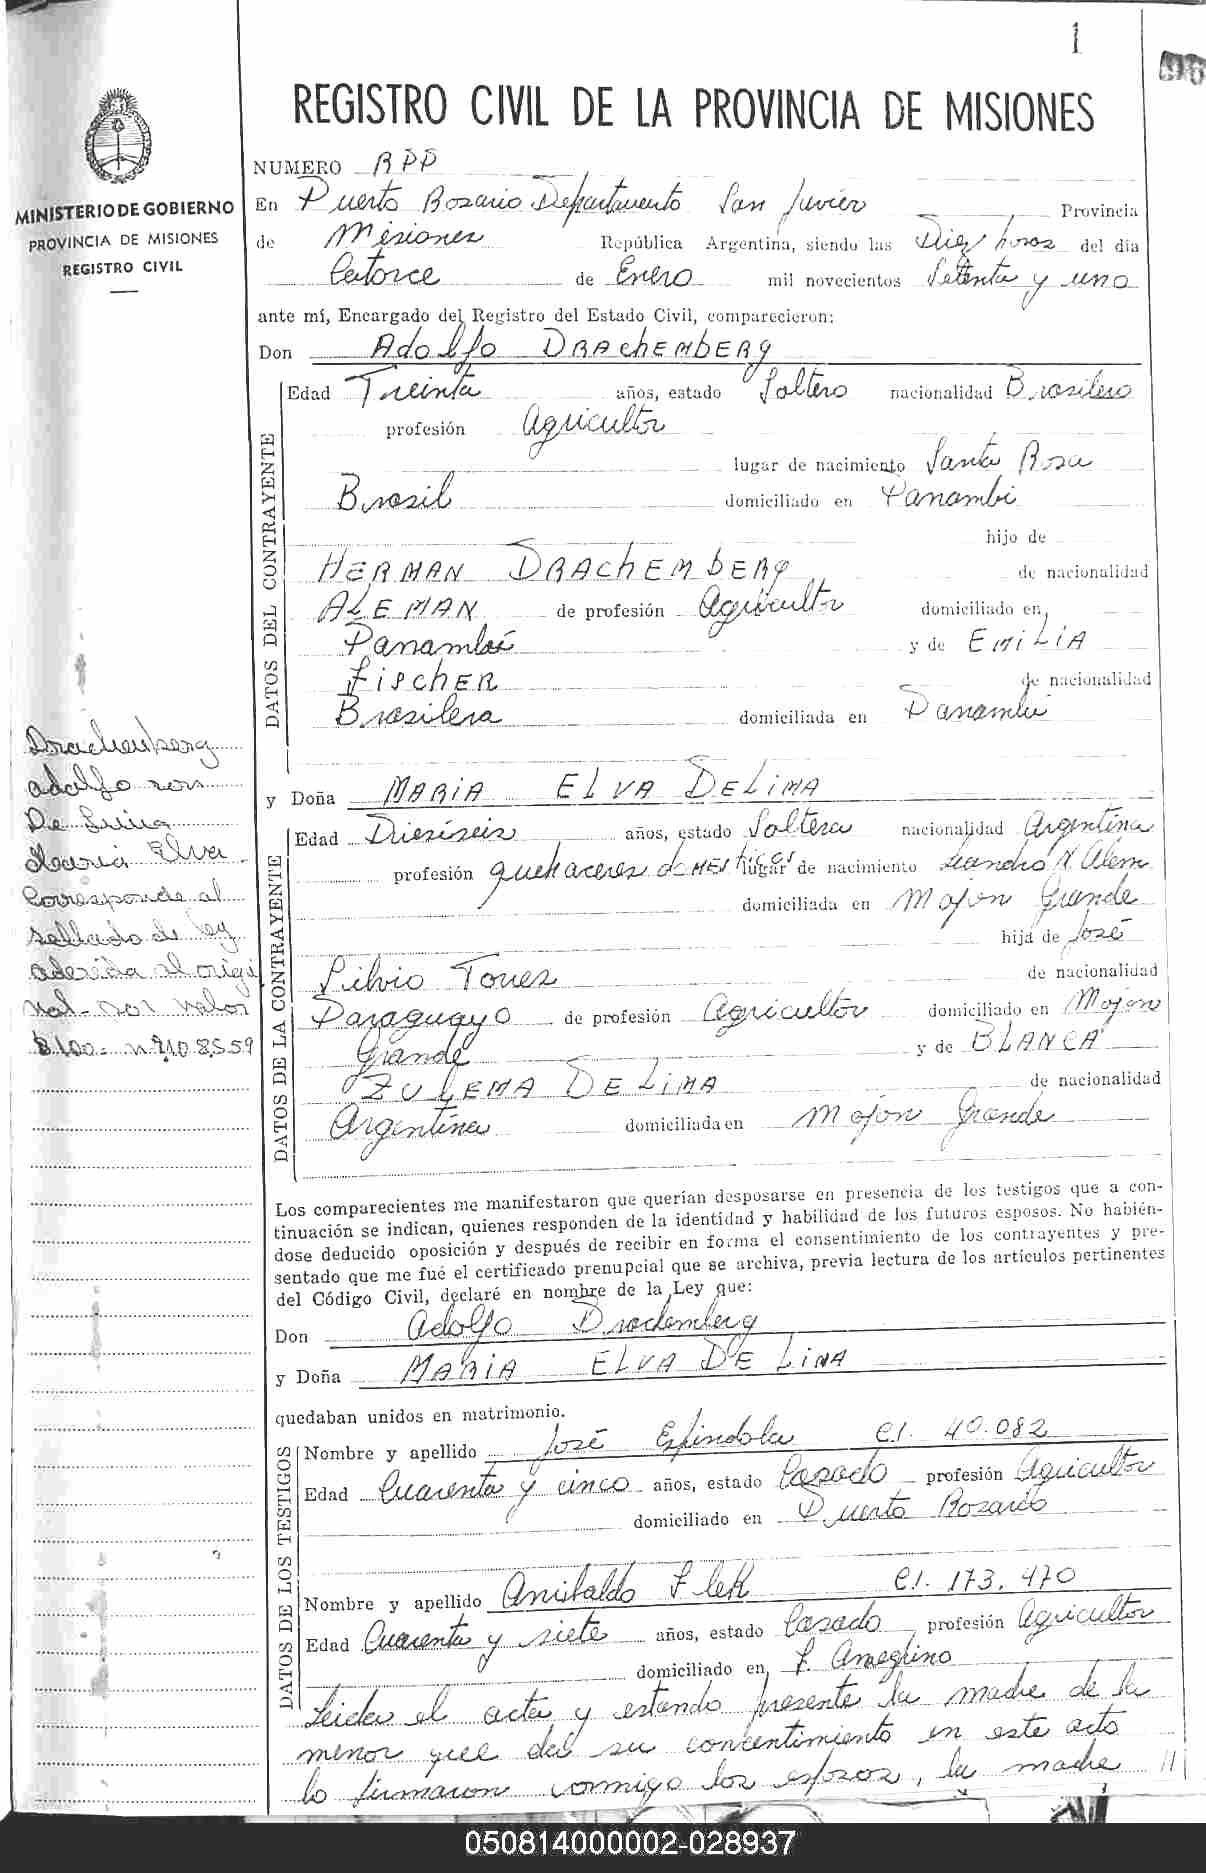 1
96
REGISTRO CIVIL DE LA PROVINCIA DE MISIONES
MINISTERIO DE GOBIERNO
PROVINCIA DE MISIONES
REGISTRO CIVIL
NUMERO RPP
En Puerto Rosario Departamento San Javier Provincia
de Misiones República Argentina, siendo las Diez horas del día
Catorce de Enero mil novecientos Setenta y uno
ante mí, Encargado del Registro del Estado Civil, comparecieron:
Don Adolfo DRAChEMbERg
DATOS DEL CONTRAYENTE
Edad Treinta años, estado Soltero nacionalidad Brasilero
profesión Agricultor
lugar de nacimiento Santa Rosa
Brasil domiciliado en Panambi
hijo de
HERMAN DRAChEMbERg
de nacionalidad
ALEMAN de profesión Agricultr domiciliado en
Panambí y de EMiLiA
FiSChER de nacionalidad
Brasilera domiciliada en Panambí
y Doña MARiA ELVA DELiMA
DATOS DE LA CONTRAYENTE
Edad Dieciseis años, estado Soltera nacionalidad Argentina
profesión quehaceres doMESticos lugar de nacimiento Leandro N Alem
domiciliada en Mojon Grande
hija de José
Silvio Torres de nacionalidad
Paraguayo de profesión Agricultor domiciliado en Mojon
Grande y de BLANCA
ZULEMA DE LiMA de nacionalidad
Argentina domiciliada en Mojon Grande
Drachenberg
Adolfo con
De Lima
Maria Elva
Corresponde al
sellado de ley
aderida al origi
nal - por valor
$ 100- nº 2108559
Los comparecientes me manifestaron que querían desposarse en presencia de los testigos que a con-
tinuación se indican, quienes responden de la identidad y habilidad de los futuros esposos. No habién-
dose deducido oposición y después de recibir en forma el consentimiento de los contrayentes y pre-
sentado que me fué el certificado prenupcial que se archiva, previa lectura de los artículos pertinentes
del Código Civil, declaré en nombre de la Ley que:
Don Adolfo Drachemberg
y Doña MARiA ELVA DE LiMA
quedaban unidos en matrimonio.
DATOS DE LOS TESTIGOS
Nombre y apellido José Espindola C.I. 40.082
Edad Cuarenta y cinco años, estado Casado profesión Agricultor
domiciliado en Puerto Rosario
Nombre y apellido Anibaldo Flek C.I. 173.470
Edad Cuarenta y siete años, estado Casado profesión Agricultor
domiciliado en F. Ameghino
Leida el acta y estando presente la madre de la
menor que da su concentimiento en este acto
lo firmaron conmigo los esposos, la madre //
050814000002-028937